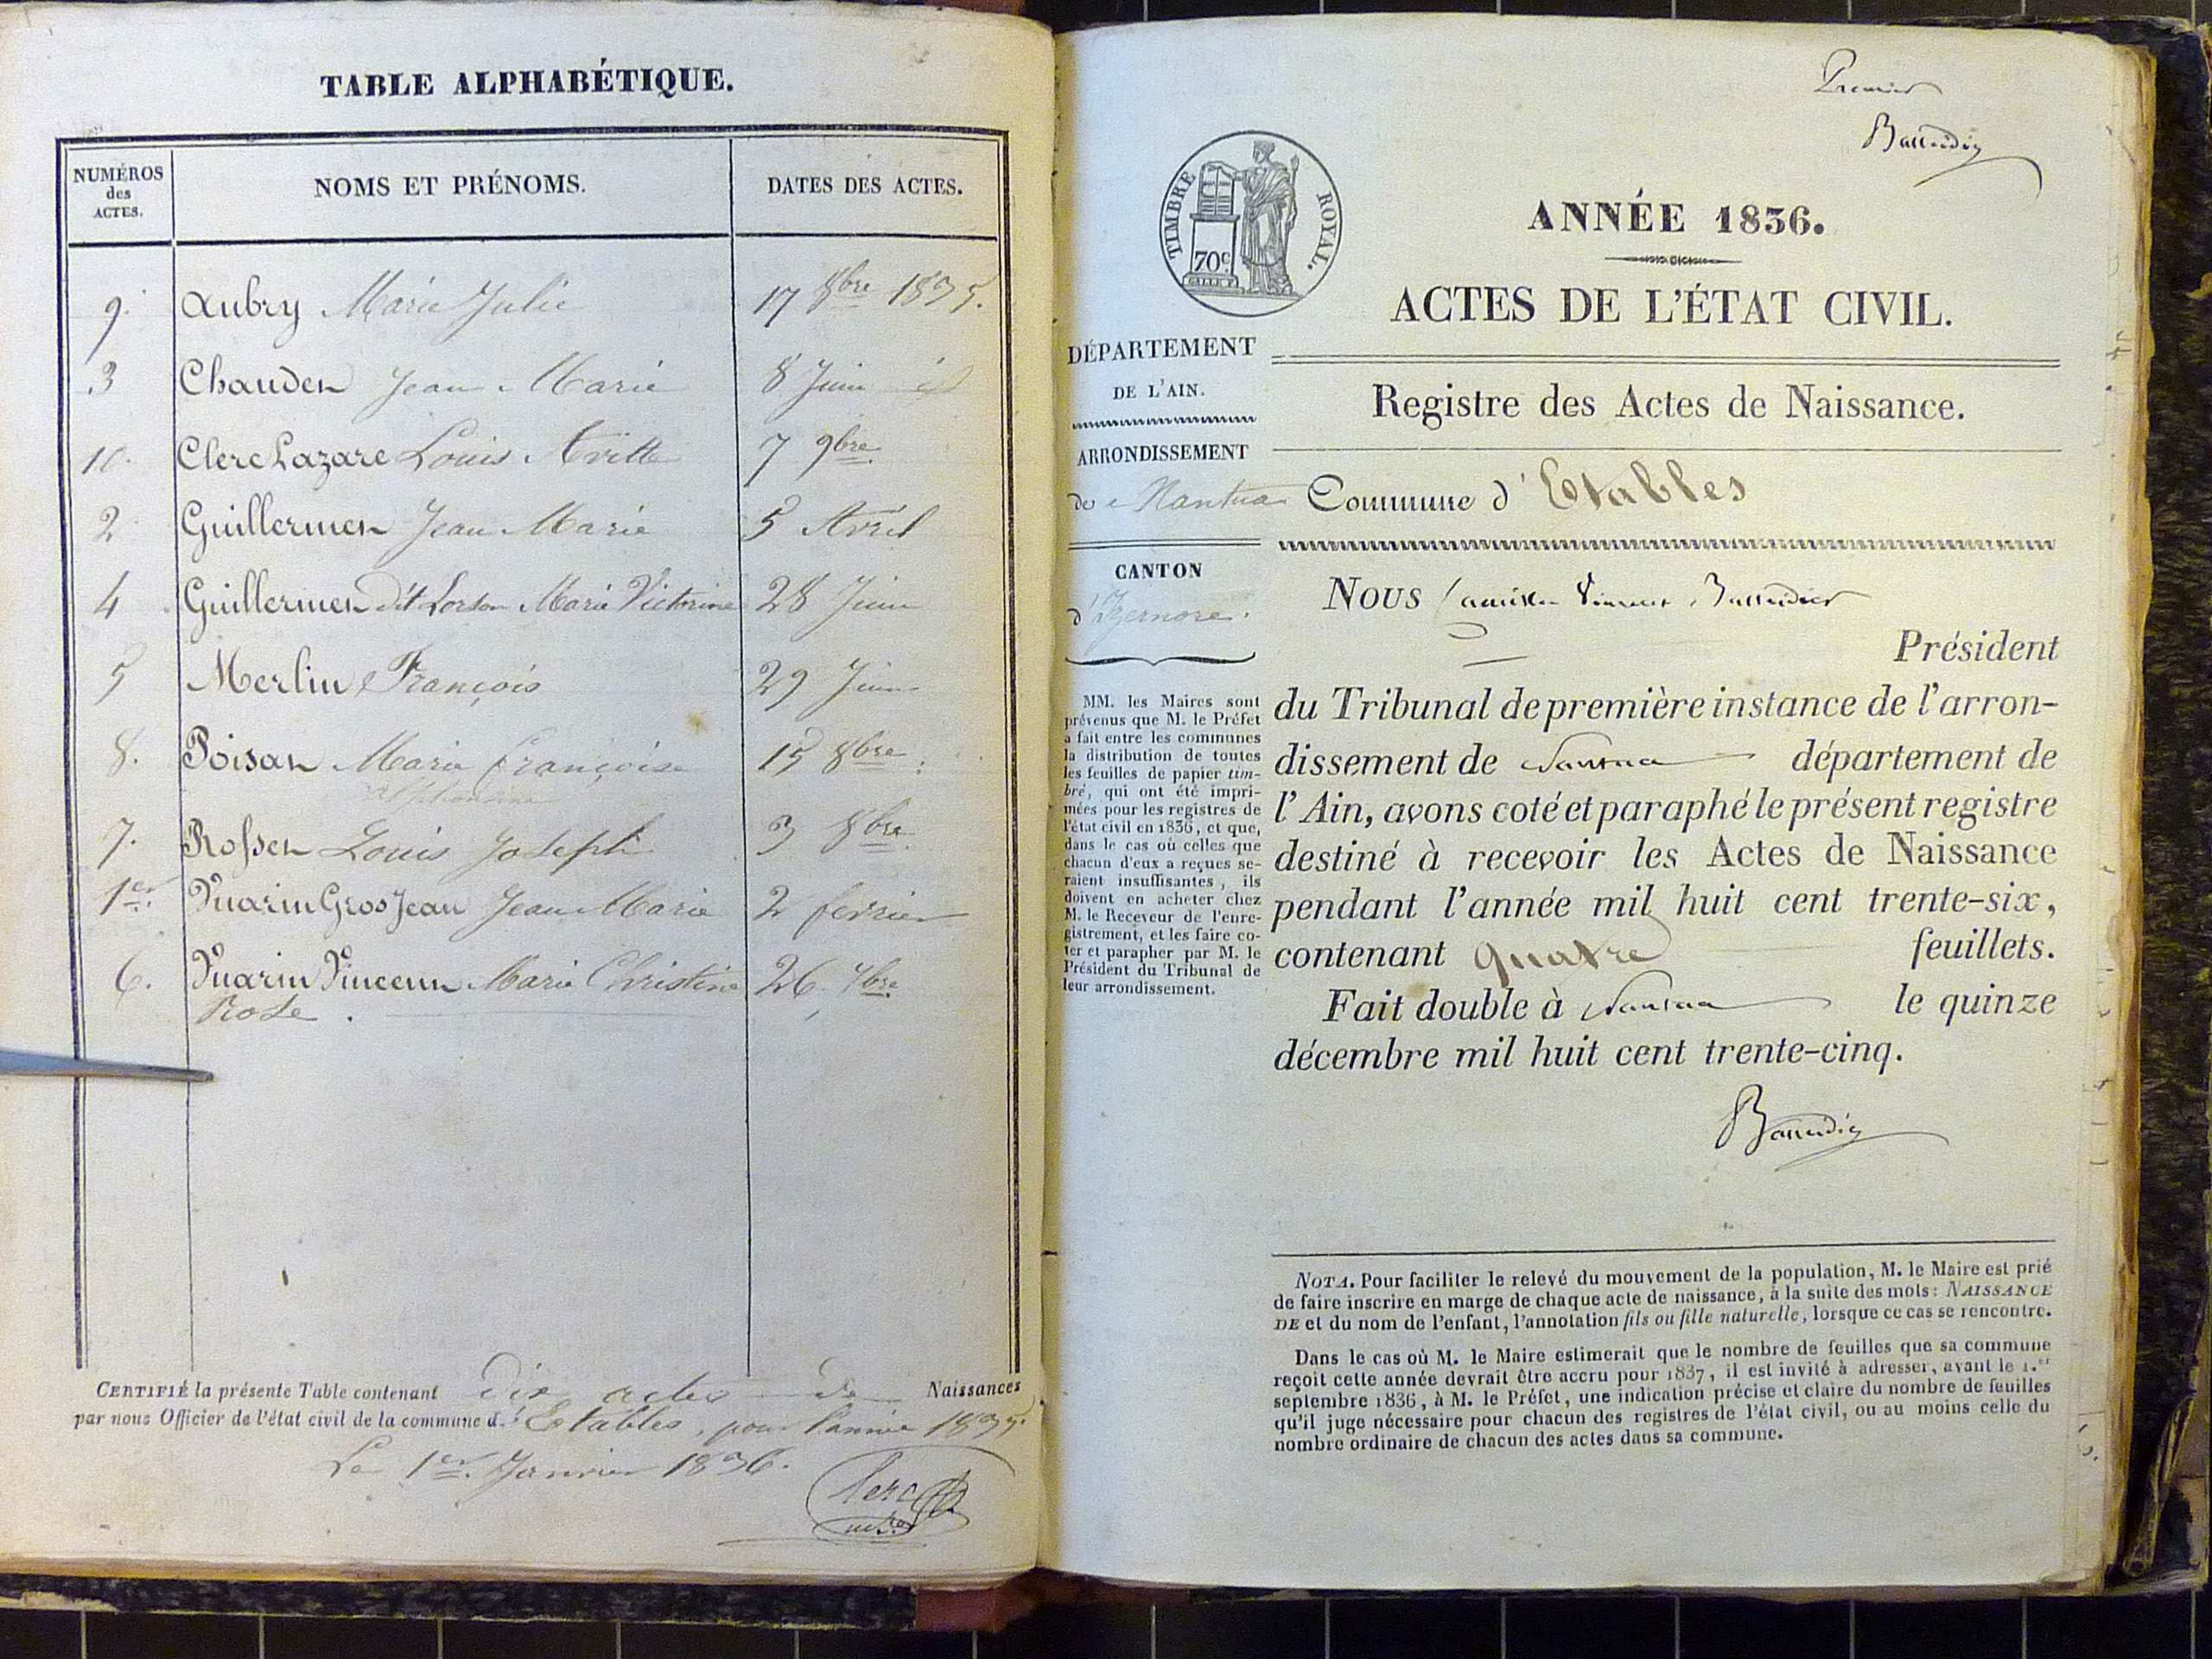 TABLE ALPHABÉTIQUE.
NUMÉROS des ACTES. NOMS ET PRÉNOMS. DATES DES ACTES.
9. Aubry Marie Julie 17 8bre 1835.
3 Chauden Jean Marie 8 Juin id
10. Clerc Lazare Louis 7 9bre
2 Guillermen Jean Marie 5 Avril
4 Guillermen dit Marie Victorine 28 Juin
5 Merlin François 29 Juin
8. Poisan Marie Françoise 15 8bre
7. Rossen Louis Joseph 3 8bre
1er. Vuarin Gros Jean Jean Marie 2 février
6. Vuarin Vincenn Marie Christine 26. 7bre
Rose.
CERTIFIÉ la présente Table contenant dix actes de Naissances
par nous Officier de l'état civil de la commune d' Etables, pour l'année 1835.
Le 1er. Janvier 1836.
Clerc
Premier
TIMBRE ROYAL.
70c
ANNÉE 1836.
ACTES DE L'ÉTAT CIVIL.
DÉPARTEMENT
DE L'AIN.
ARRONDISSEMENT
de Nantua
CANTON
d'Izernore.
MM. les Maires sont
prévenus que M. le Préfet
a fait entre les communes
la distribution de toutes
les feuilles de papier tim-
bré, qui ont été impri-
mées pour les registres de
l'état civil en 1836, et que,
dans le cas où celles que
chacun d'eux a reçues se-
raient insuffisantes, ils
doivent en acheter chez
M. le Receveur de l'enre-
gistrement, et les faire co-
ter et parapher par M. le
Président du Tribunal de
leur arrondissement.
Registre des Actes de Naissance.
Commune d'Etables
Nous
Président
du Tribunal de première instance de l'arron-
dissement de Nantua département de
l'Ain, avons coté et paraphé le présent registre
destiné à recevoir les Actes de Naissance
pendant l'année mil huit cent trente-six,
contenant quatre feuillets.
Fait double à Nantua le quinze
décembre mil huit cent trente-cinq.
NOTA. Pour faciliter le relevé du mouvement de la population, M. le Maire est prié
de faire inscrire en marge de chaque acte de naissance, à la suite des mots: NAISSANCE
DE et du nom de l'enfant, l'annotation fils ou fille naturelle, lorsque ce cas se rencontre.
Dans le cas où M. le Maire estimerait que le nombre de feuilles que sa commune
reçoit cette année devrait être accru pour 1837, il est invité à adresser, avant le 1.er
septembre 1836, à M. le Préfet, une indication précise et claire du nombre de feuilles
qu'il juge nécessaire pour chacun des registres de l'état civil, ou au moins celle du
nombre ordinaire de chacun des actes dans sa commune.